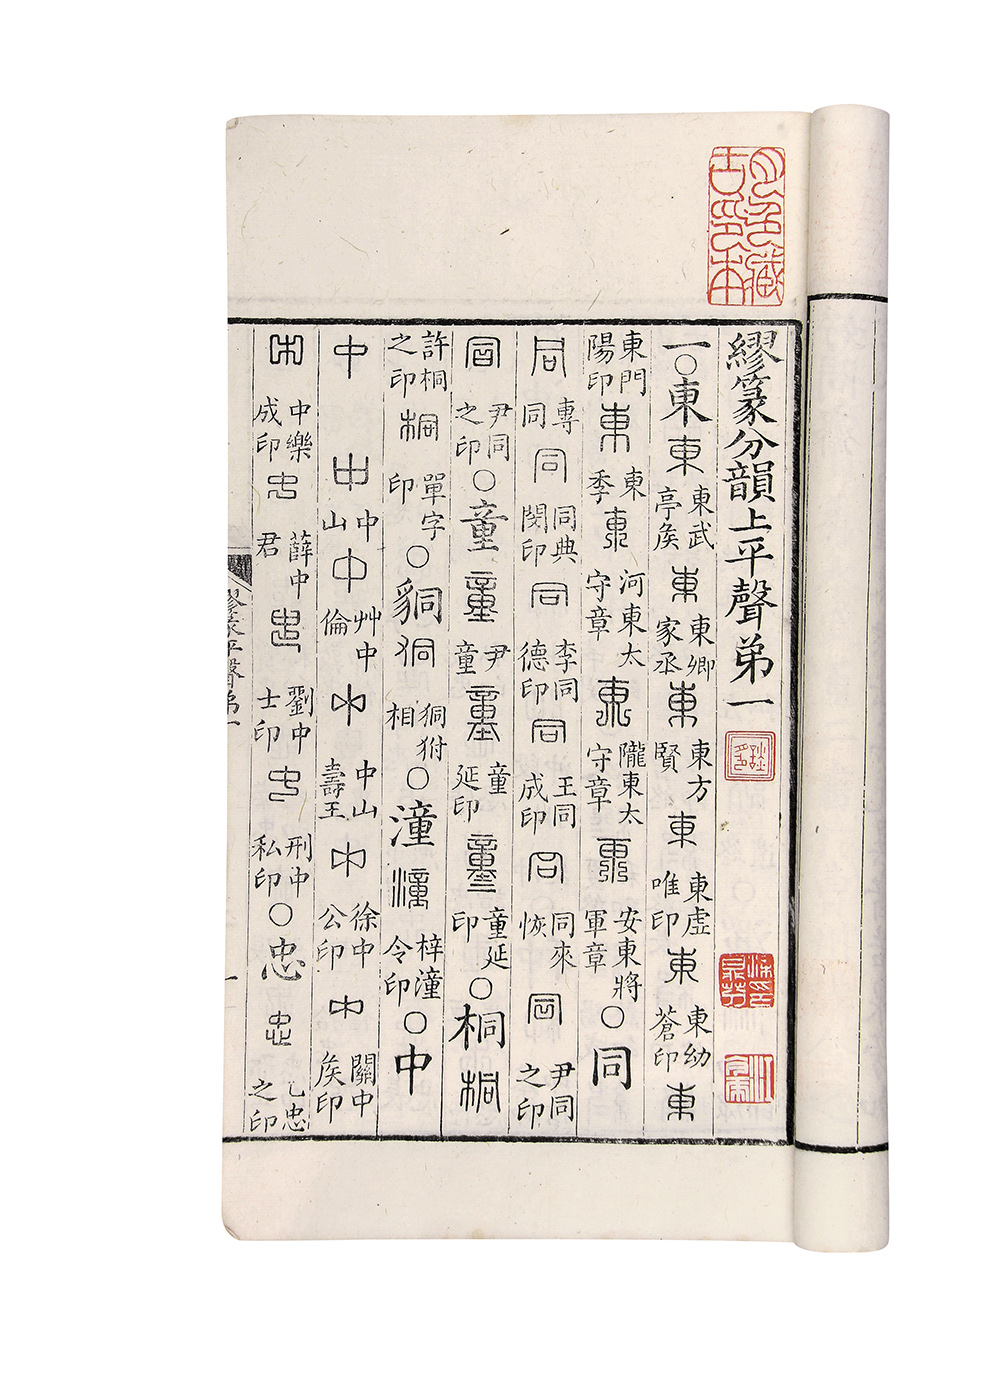 繆篆分韻上平聲弟一
一〇東東東武亭矦東東卿家丞東東方賢東東虛唯印東東幼蒼印東
東門陽印東東季東河東太守章東隴東太守章東安東將軍章〇同
同專同同同典閔印同李同德印同王同成印同同來恢同尹同之印
同尹同之印〇童童尹童童童延印童童延印〇桐桐
許桐之印桐單字印〇狪狪狪狪相〇潼潼梓潼令印〇中
中中中山中艸中倫中中山壽王中徐中公印中關中矦印
中中樂成印中薛中君中劉中士印中刑中私印〇忠忠乙忠之印
繆篆平聲弟一
一